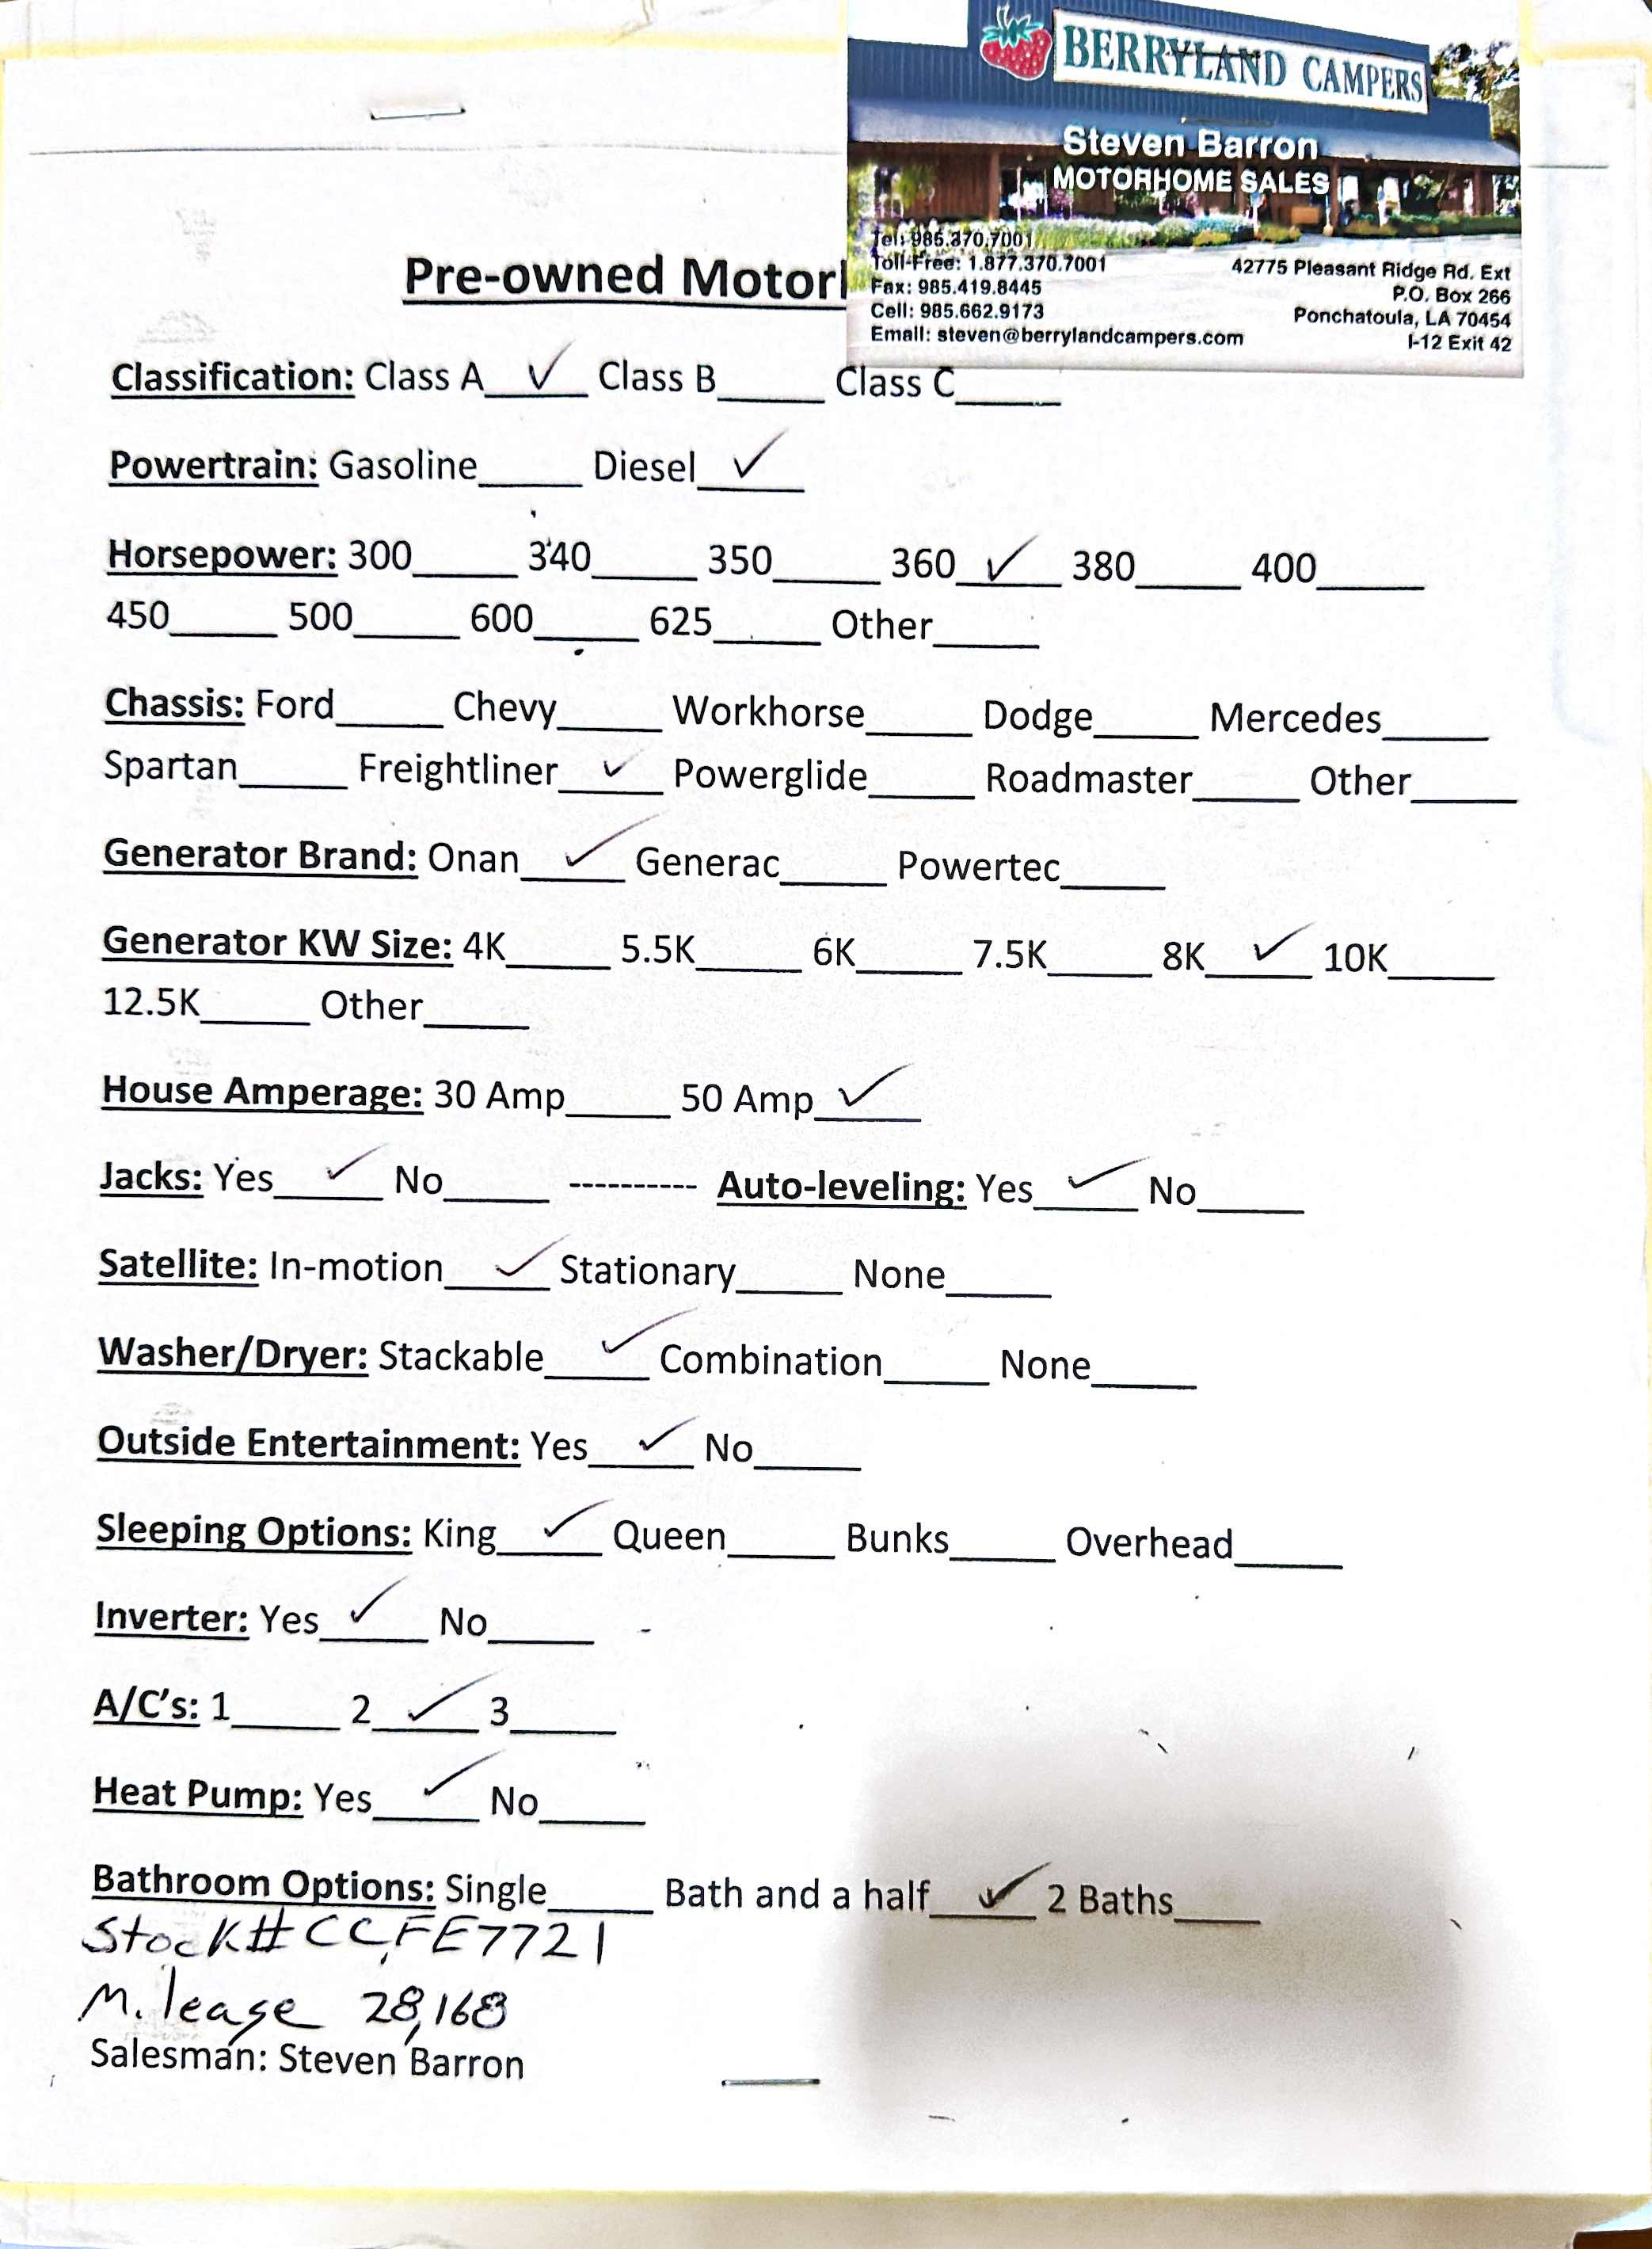 BERRYLAND CAMPERS
Steven Barron
MOTORHOME SALES
Tel: 985.370.7001
Toll-Free: 1.877.370.7001
Fax: 985.419.8445
Cell: 985.662.9173
Email: steven@berrylandcampers.com
42775 Pleasant Ridge Rd. Ext
P.O. Box 266
Ponchatoula, LA 70454
I-12 Exit 42
Pre-owned Motor
Classification: Class A ✓ Class B_____ Class C_____
Powertrain: Gasoline_____ Diesel ✓
Horsepower: 300_____ 340_____ 350_____ 360 ✓ 380_____ 400_____
450_____ 500_____ 600_____ 625_____ Other_____
Chassis: Ford_____ Chevy_____ Workhorse_____ Dodge_____ Mercedes_____
Spartan_____ Freightliner ✓ Powerglide_____ Roadmaster_____ Other_____
Generator Brand: Onan ✓ Generac_____ Powertec_____
Generator KW Size: 4K_____ 5.5K_____ 6K_____ 7.5K_____ 8K ✓ 10K_____
12.5K_____ Other_____
House Amperage: 30 Amp_____ 50 Amp ✓
Jacks: Yes ✓ No_____ ---------- Auto-leveling: Yes ✓ No_____
Satellite: In-motion ✓ Stationary_____ None_____
Washer/Dryer: Stackable ✓ Combination_____ None_____
Outside Entertainment: Yes ✓ No_____
Sleeping Options: King ✓ Queen_____ Bunks_____ Overhead_____
Inverter: Yes ✓ No_____
A/C's: 1_____ 2 ✓ 3_____
Heat Pump: Yes ✓ No_____
Bathroom Options: Single_____ Bath and a half ✓ 2 Baths____
Stock# CCFE7721
Mileage 28,168
Salesman: Steven Barron